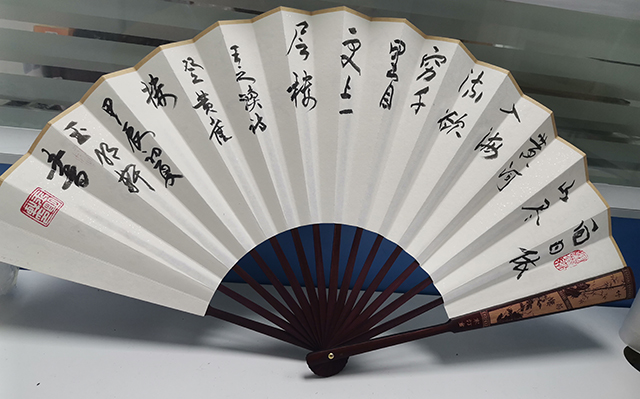 白日依
山尽
黄河
入海
流欲
穷千
里目
更上一
层楼
王之涣诗
登黄雀
楼
甲辰初夏
玉明轩
书